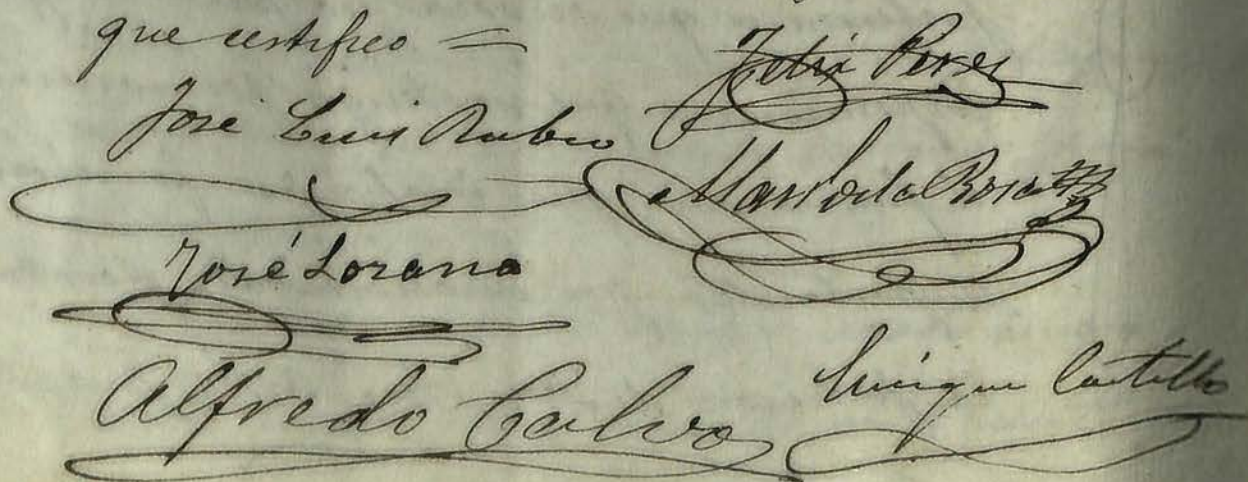 que certifico =
Felix Perez
José Luis Rubio
Man de la Rosa
José Lozano
Alfredo Calvo
Enrique Castillo